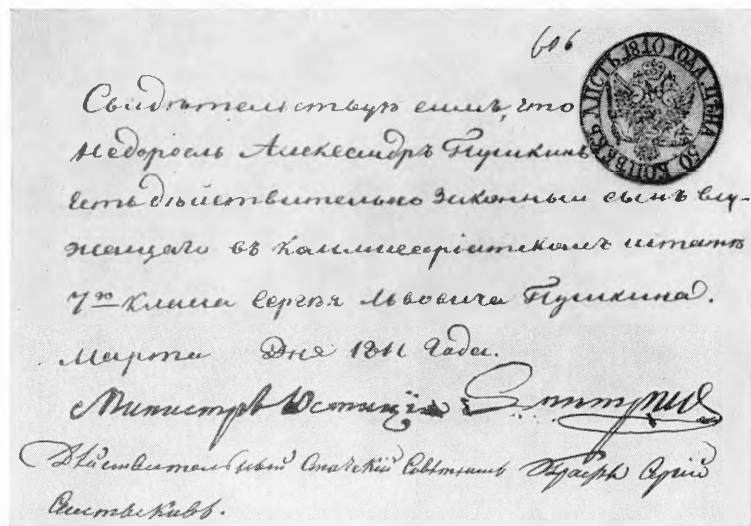 606
ЛИСТЪ 1810 ГОДА. ЦѢНА 50. КОПѢЕКЪ
Свидѣтельствую симъ, что
Недоросль Александръ Пушкинъ
Есть дѣйствительно законный сынъ слу-
жащаго въ Каммисаріатскомъ штатѣ
7го класса Сергѣя Львовича Пушкина.
Марта Дня 1811 Года.
Министръ Юстиціи Дмитріевъ
Дѣйствительный Статскій Совѣтникъ Графъ
Салтыковъ.